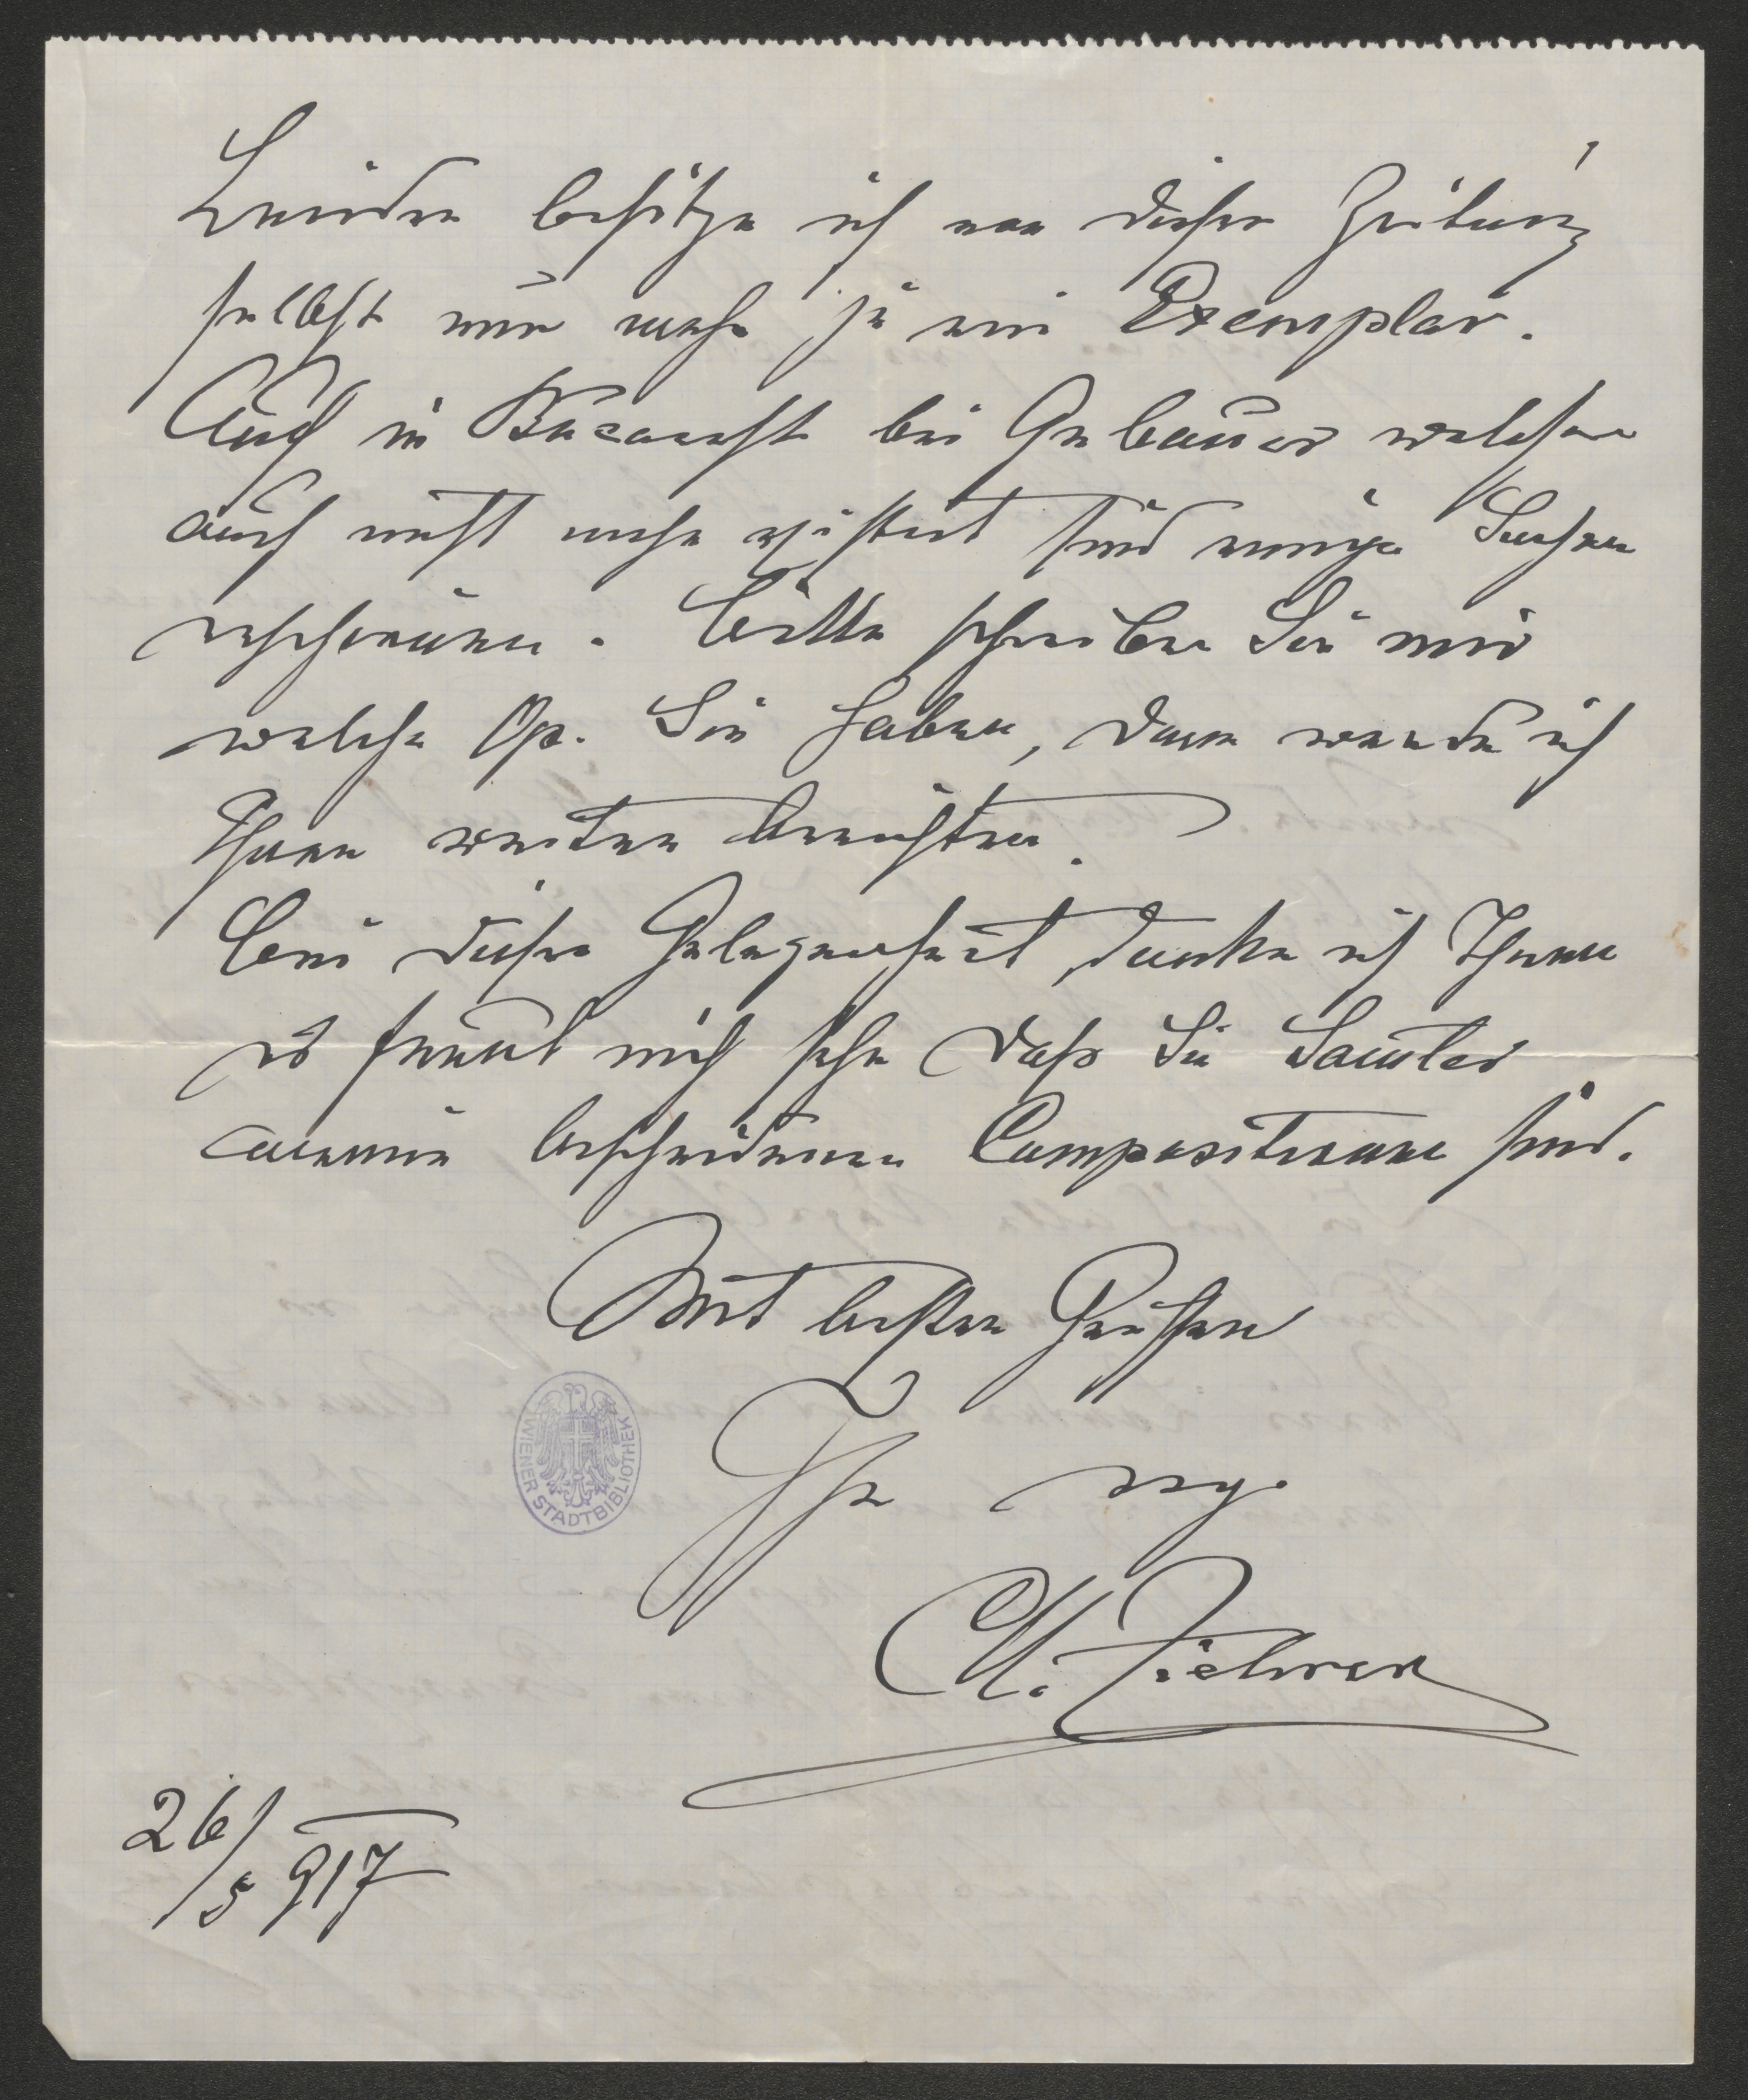 Leider besitze ich von dieser Zeitung
selbst nur mehr je ein Exemplar.
Auch in Bucarest bei Gebauer welcher
auch nicht mehr existirt sind einige Sachen
erschienen. Bitte schreiben Sie mir
welche Op. Sie haben, dann werde ich
Ihnen weiter berichten.
Bei dieser Gelegenheit danke ich Ihnen
es freut mich sehr daß Sie Samler
meiner bescheidenen Compositionen sind.
Mit besten Grüßen
Ihr erg.
C.M. Ziehrer
WIENER STADTBIBLIOTHEK
26/5 917